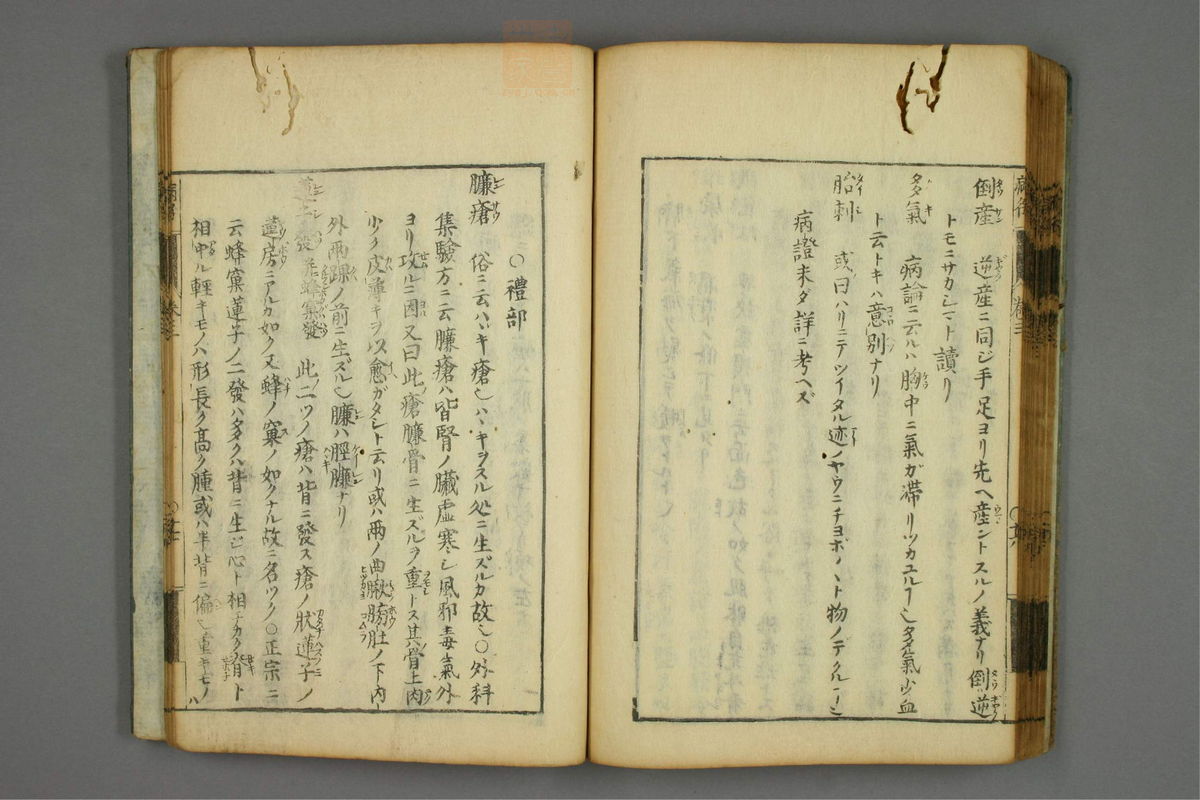 倒産 逆産ニ同ジ手足ヨリ先ヘ産ントスルノ義ナリ倒逆
トモニサカシマト讀リ
多氣 病論ニ云ルハ胸中ニ氣ガ滞リツカユルヿ也多氣少血
ト云トキハ意別ナリ
胎刺 或曰ハリニテツイタル迹ノヤウニチヨボ〳〵ト物ノデクルヿ也
病證未ダ詳ニ考ヘズ
○禮部
臁瘡 俗ニ云ハヾキ瘡也ハヾキヲスル処ニ生ズルカ故也○外科
集驗方ニ云臁瘡ハ皆腎ノ臟虚寒シ風邪毒氣外
ヨリ攻ルニ因又曰此瘡臁骨ニ生ズルヲ重トス其骨上肉
少ク皮薄キヲ以愈ガタシト云リ或ハ兩ノ曲䐐膀肚ノ下内
外兩踝ノ前ニ生ズル也臁ハ脛臁ナリ
蓮子發 并蜂窠發 此二ツノ瘡ハ背ニ發ス瘡ノ状蓮子ノ
蓬房ニアルカ如ク又蜂ノ窠ノ如クナル故ニ名ツク○正宗ニ
云蜂窠蓮子ノ二發ハ多クハ背ニ生ジ心ト相チカク脊ト
相中ル輕キモノハ形長ク高ク腫或ハ半背ニ偏也重キモノハ